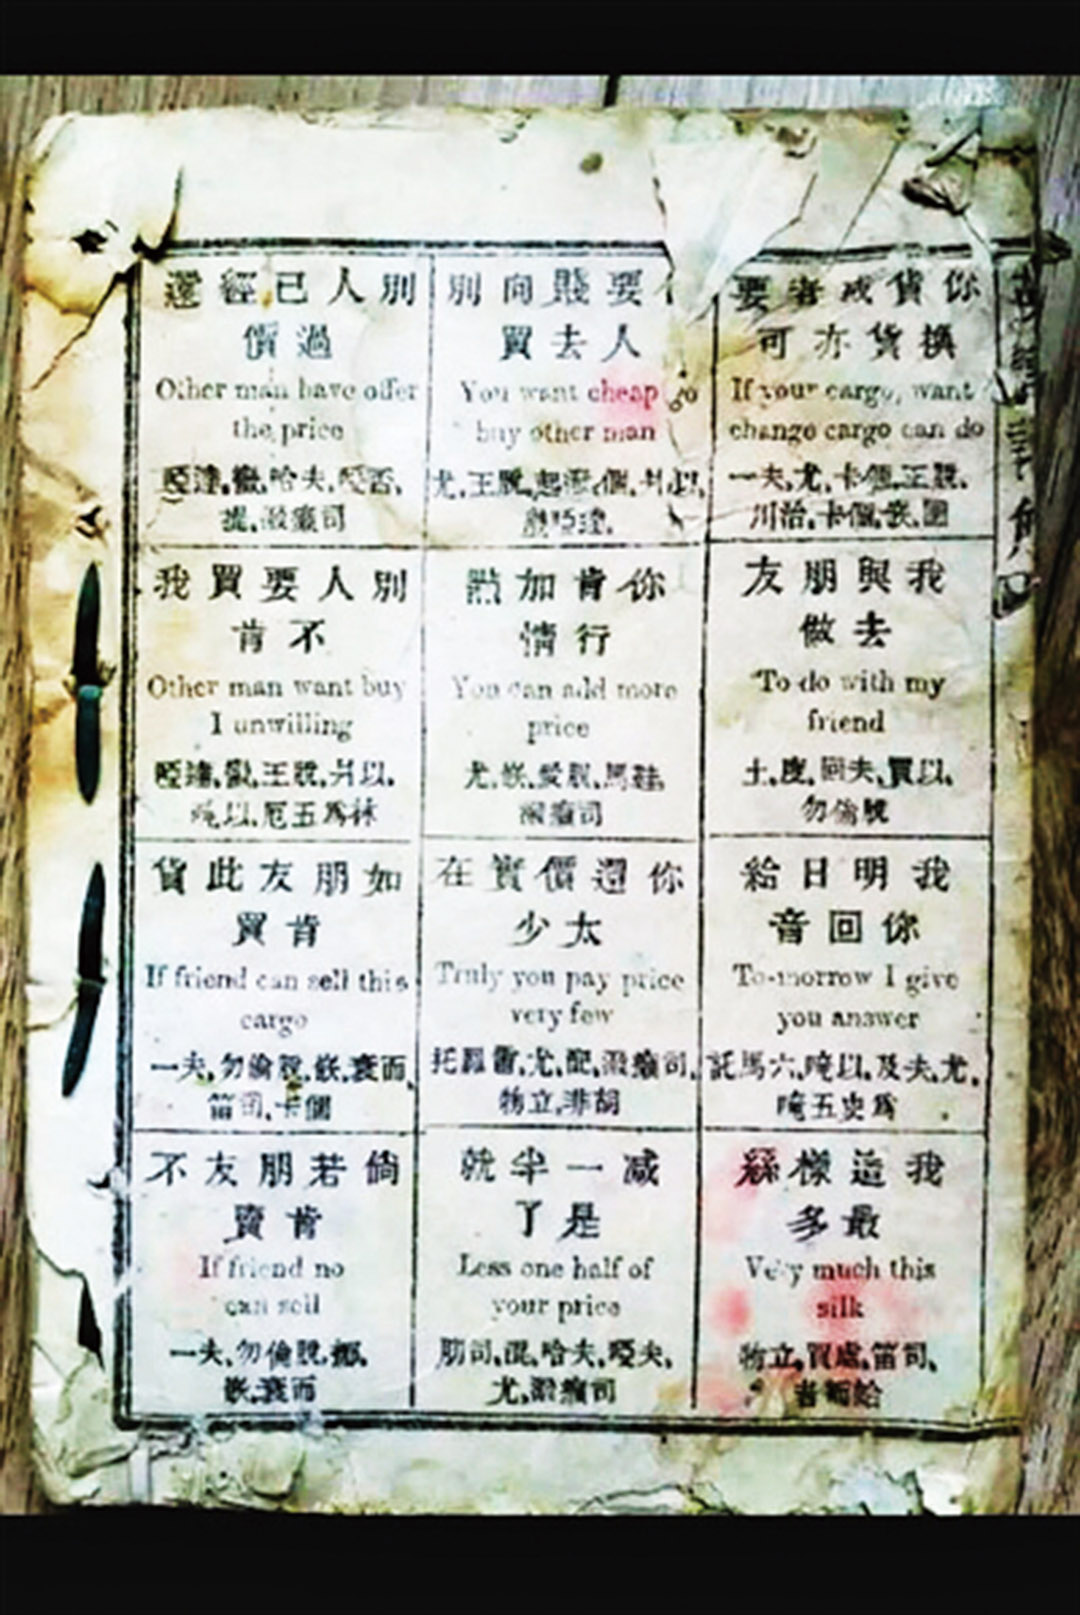 你貨或者要
換貨亦可
If your cargo, want
change cargo can do
一夫,尤,卡個,王脫,
川治,卡個
我與朋友
去做
To do with my
friend
土,度,回夫,買以,
勿倫脫
我明日給
你回音
To-morrow I give
you answer
託馬六,唵以,及夫,尤,
唵五史為
我這樣絲
最多
Very much this
silk
物立,買處,笛司,
要賤向別
人去買
You want cheap
buy other man
尤,王脫,起潑,個,爿以,
你肯加點
行情
You can add more
price
尤,嵌,愛脫,馬鞋,
潑癩司
你還價實在
太少
Truly you pay price
very few
托羅雷,尤,配,潑癩司,
物立,非胡
減一半就
是了
Less one half of
your price
肋司,混,哈夫,啞夫,
尤,潑癩司
別人已經還
過價
Other man have offer
the price
啞達,蠻,哈夫,啞否,
提,潑癩司
別人要買我
不肯
Other man want buy
I unwilling
啞達,蠻,王脫,爿以,
唵以,厄五為林
如朋友此貨
肯買
If friend can sell this
cargo
一夫,勿倫脫,嵌,衰而,
笛司,卡個
倘若朋友不
肯賣
If friend no
can sell
一夫,勿倫脫,
嵌,衰而